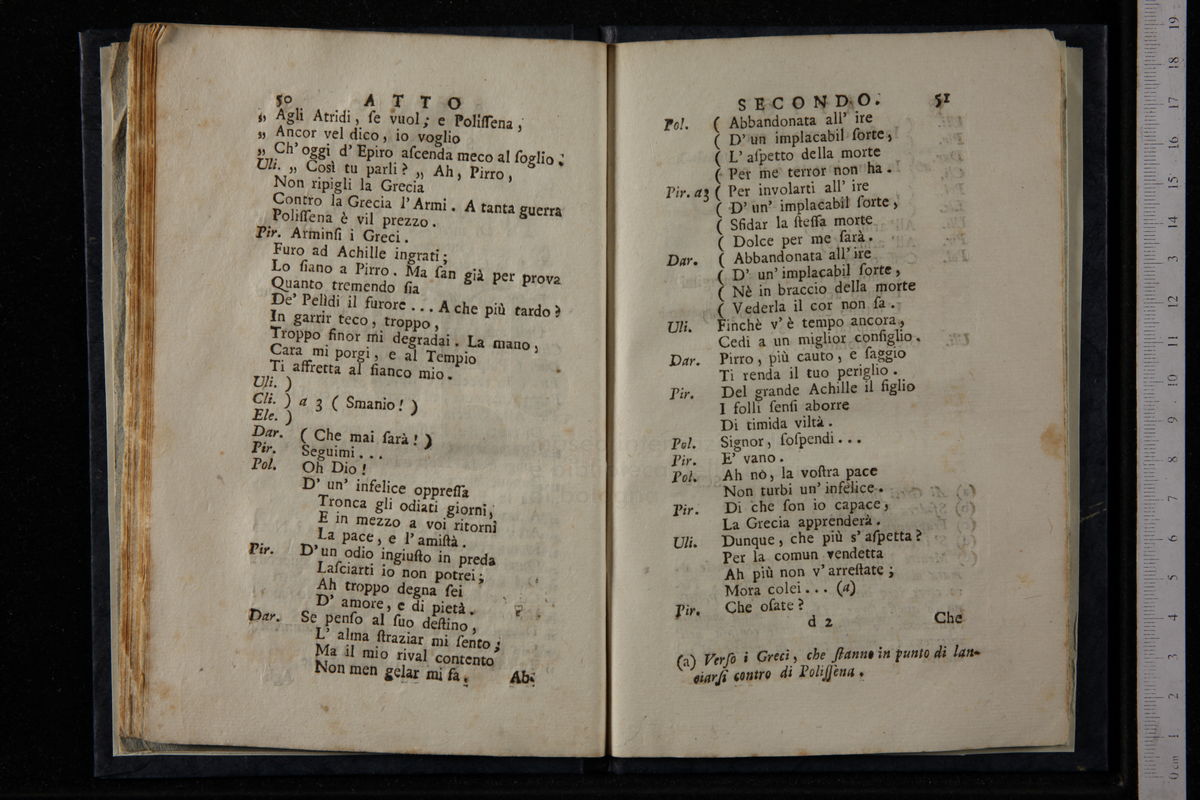 50 ATTO
„ Agli Atridi, ſe vuol; e Poliſſena,
„ Ancor vel dico, io voglio
„ Ch' oggi d' Epiro aſcenda meco al ſoglio.
Uli. „ Così tu parli? „ Ah, Pirro,
Non ripigli la Grecia
Contro la Grecia l'Armi. A tanta guerra
Poliſſena è vil prezzo.
Pir. Arminſi i Greci.
Furo ad Achille ingrati;
Lo ſiano a Pirro. Ma ſan già per prova
Quanto tremendo ſia
De' Pelìdi il furore... A che più tardo?
In garrir teco, troppo,
Troppo finor mi degradai. La mano,
Cara mi porgi, e al Tempio
Ti affretta al fianco mio.
Uli. )
Cli. ) a 3 ( Smanio! )
Ele. )
Dar. ( Che mai ſarà! )
Pir. Seguimi...
Pol. Oh Dio!
D' un' infelice oppreſſa
Tronca gli odiati giorni,
E in mezzo a voi ritorni
La pace, e l'amiſtà.
Pir. D'un odio ingiuſto in preda
Laſciarti io non potrei;
Ah troppo degna ſei
D' amore, e di pietà.
Dar. Se penſo al ſuo deſtino,
L' alma ſtraziar mi ſento;
Ma il mio rival contento
Non men gelar mi fa.
Ab-
SECONDO. 51
Pol. ( Abbandonata all' ire
( D' un implacabil ſorte,
( L' aſpetto della morte
( Per me terror non ha.
Pir. a3 ( Per involarti all' ire
( D' un' implacabil ſorte,
( Sfidar la ſteſſa morte
( Dolce per me ſarà.
Dar. ( Abbandonata all' ire
( D' un' implacabil ſorte,
( Nè in braccio della morte
( Vederla il cor non ſa.
Uli. Finchè v' è tempo ancora,
Cedi a un miglior conſiglio.
Dar. Pirro, più cauto, e ſaggio
Ti renda il tuo periglio.
Pir. Del grande Achille il figlio
I folli ſenſi aborre
Di timida viltà.
Pol. Signor, ſoſpendi...
Pir. E' vano.
Pol. Ah nò, la voſtra pace
Non turbi un' infelice.
Pir. Di che ſon io capace,
La Grecia apprenderà.
Uli. Dunque, che più s' aſpetta?
Per la comun vendetta
Ah più non v' arreſtate;
Mora colei... (a)
Pir. Che oſate?
d 2 Che
(a) Verſo i Greci, che ſtanno in punto di lan-
ciarſi contro di Poliſſena.